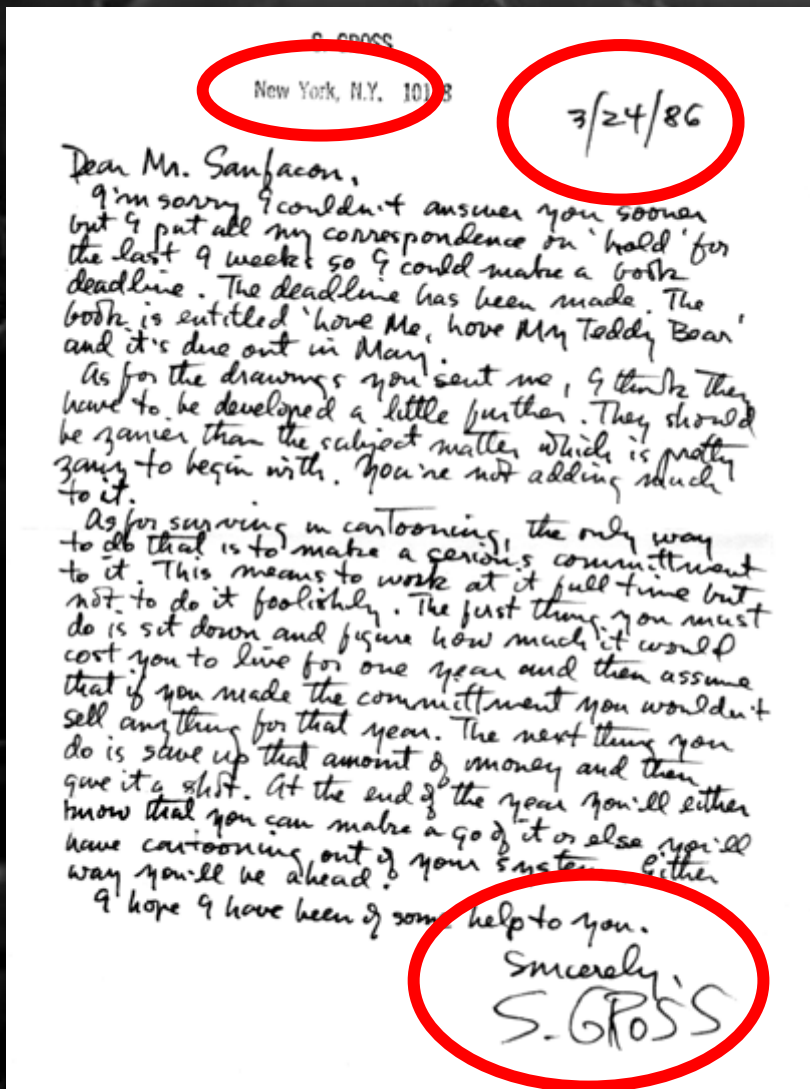 S. GROSS
New York, N.Y. 101 8
3/24/86
Dear Mr. Sanfacon,
I'm sorry I couldn't answer you sooner
but I put all my correspondence on 'hold' for
the last 9 weeks so I could make a book
deadline. The deadline has been made. The
book is entitled 'Love Me, Love My Teddy Bear'
and it's due out in May.
As for the drawings you sent me, I think they
have to be developed a little further. They should
be zanier than the subject matter which is pretty
zany to begin with. You're not adding much
to it.
As for surviving in cartooning, the only way
to do that is to make a serious committment
to it. This means to work at it full time but
not to do it foolishly. The first thing you must
do is sit down and figure how much it would
cost you to live for one year and then assume
that if you made the committment you wouldn't
sell anything for that year. The next thing you
do is save up that amount of money and then
give it a shot. At the end of the year you'll either
know that you can make a go of it or else you'll
have cartooning out of your system. Either
way you'll be ahead.
I hope I have been of some help to you.
Sincerely,
S. GROSS